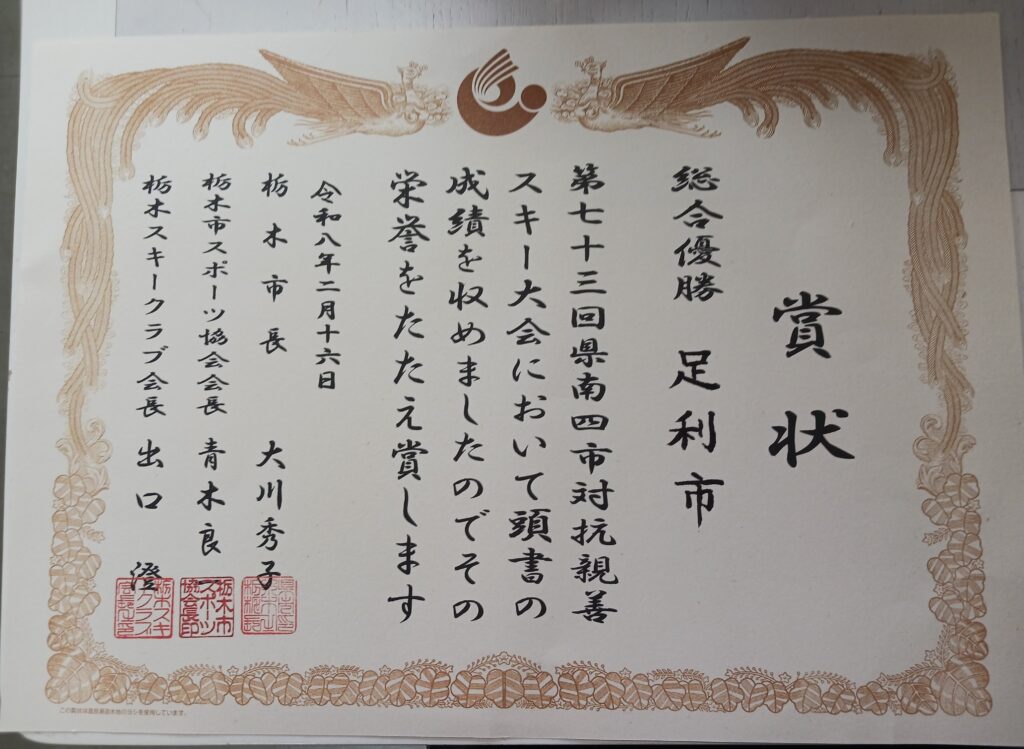 賞状
総合優勝 足利市
第七十三回県南四市対抗親善
スキー大会において頭書の
成績を収めましたのでその
栄誉をたたえ賞します
令和八年二月十六日
栃木市長 大川秀子
栃木市スポーツ協会会長 青木良一
栃木スキークラブ会長 出口 澄
栃木市
スポーツ
協会長印
栃木スキ
ークラブ
会長之印